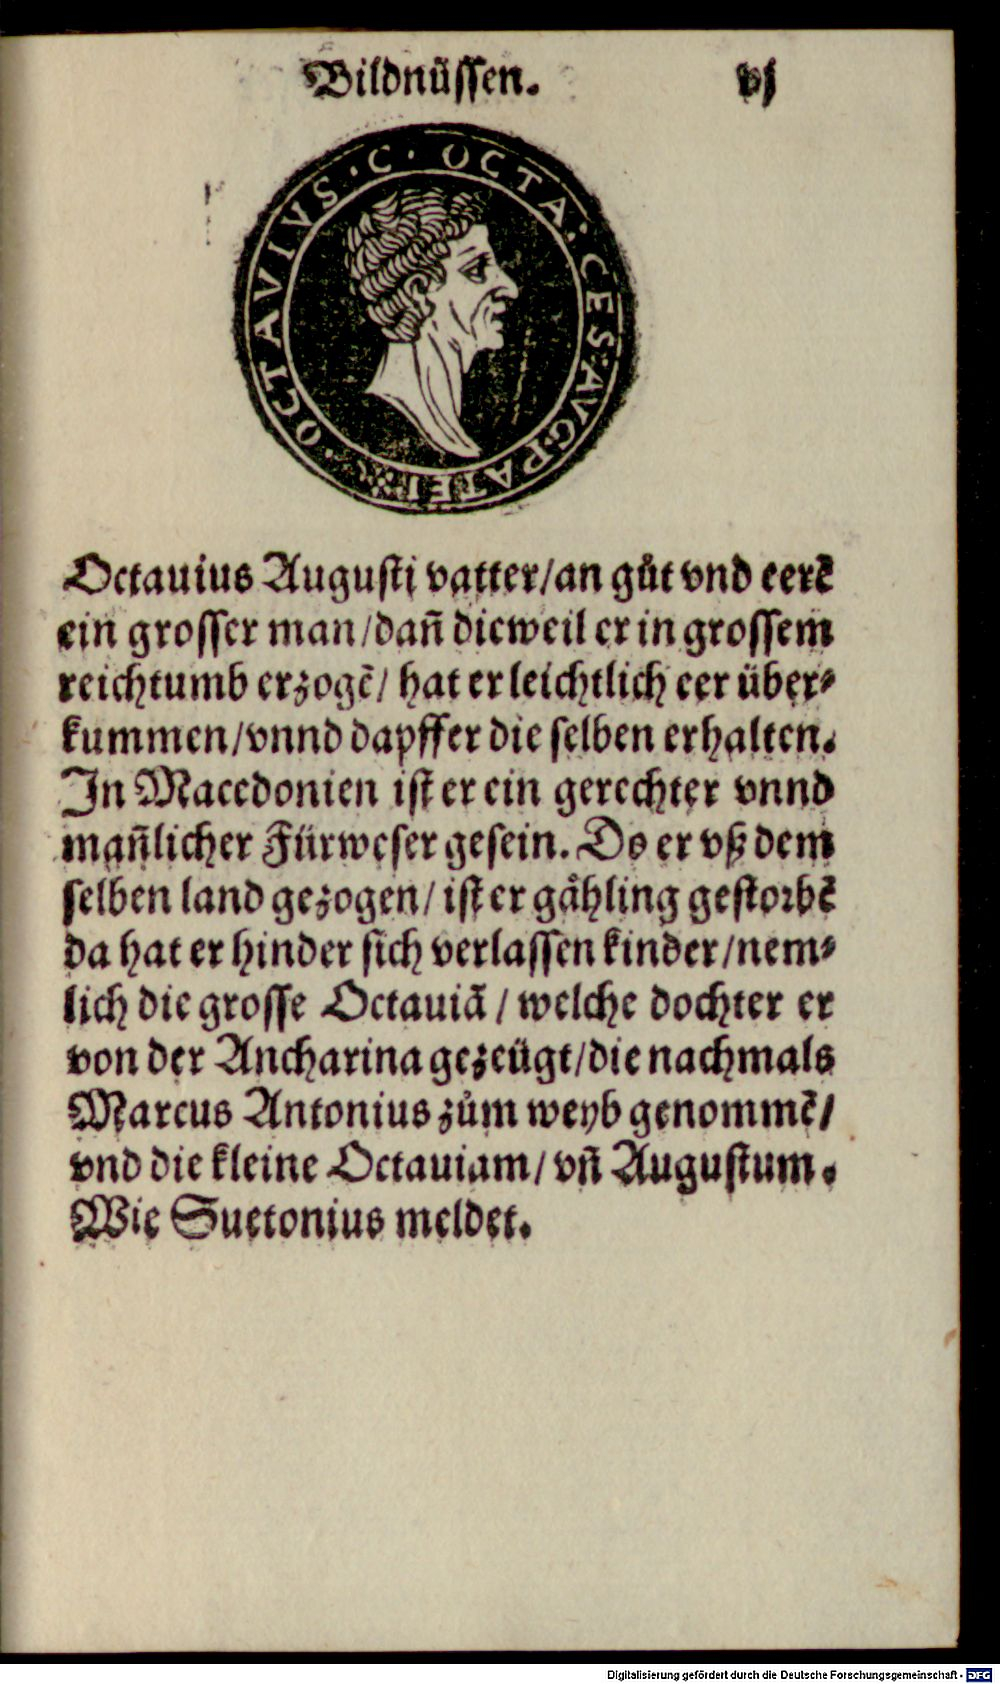 Bildnüssen. vj
OCTAVIVS · C · OCTA · CES AVG PATER
Octauius Augusti vatter/an gůt vnd eerẽ
ein grosser man/dañ dieweil er in grossem
reichtumb erzogẽ/ hat er leichtlich eer über⸗
kummen/vnnd dapffer die selben erhalten.
In Macedonien ist er ein gerechter vnnd
mañlicher Fürweser gesein. Do er vß dem
selben land gezogen/ ist er gåhling gestorbẽ
da hat er hinder sich verlassen kinder/nem⸗
lich die grosse Octauiã / welche dochter er
von der Ancharina gezeügt/die nachmals
Marcus Antonius zům weyb genommẽ/
vnd die kleine Octauiam/ vñ Augustum.
Wie Suetonius meldet.
Digitalisierung gefördert durch die Deutsche Forschungsgemeinschaft - DFG